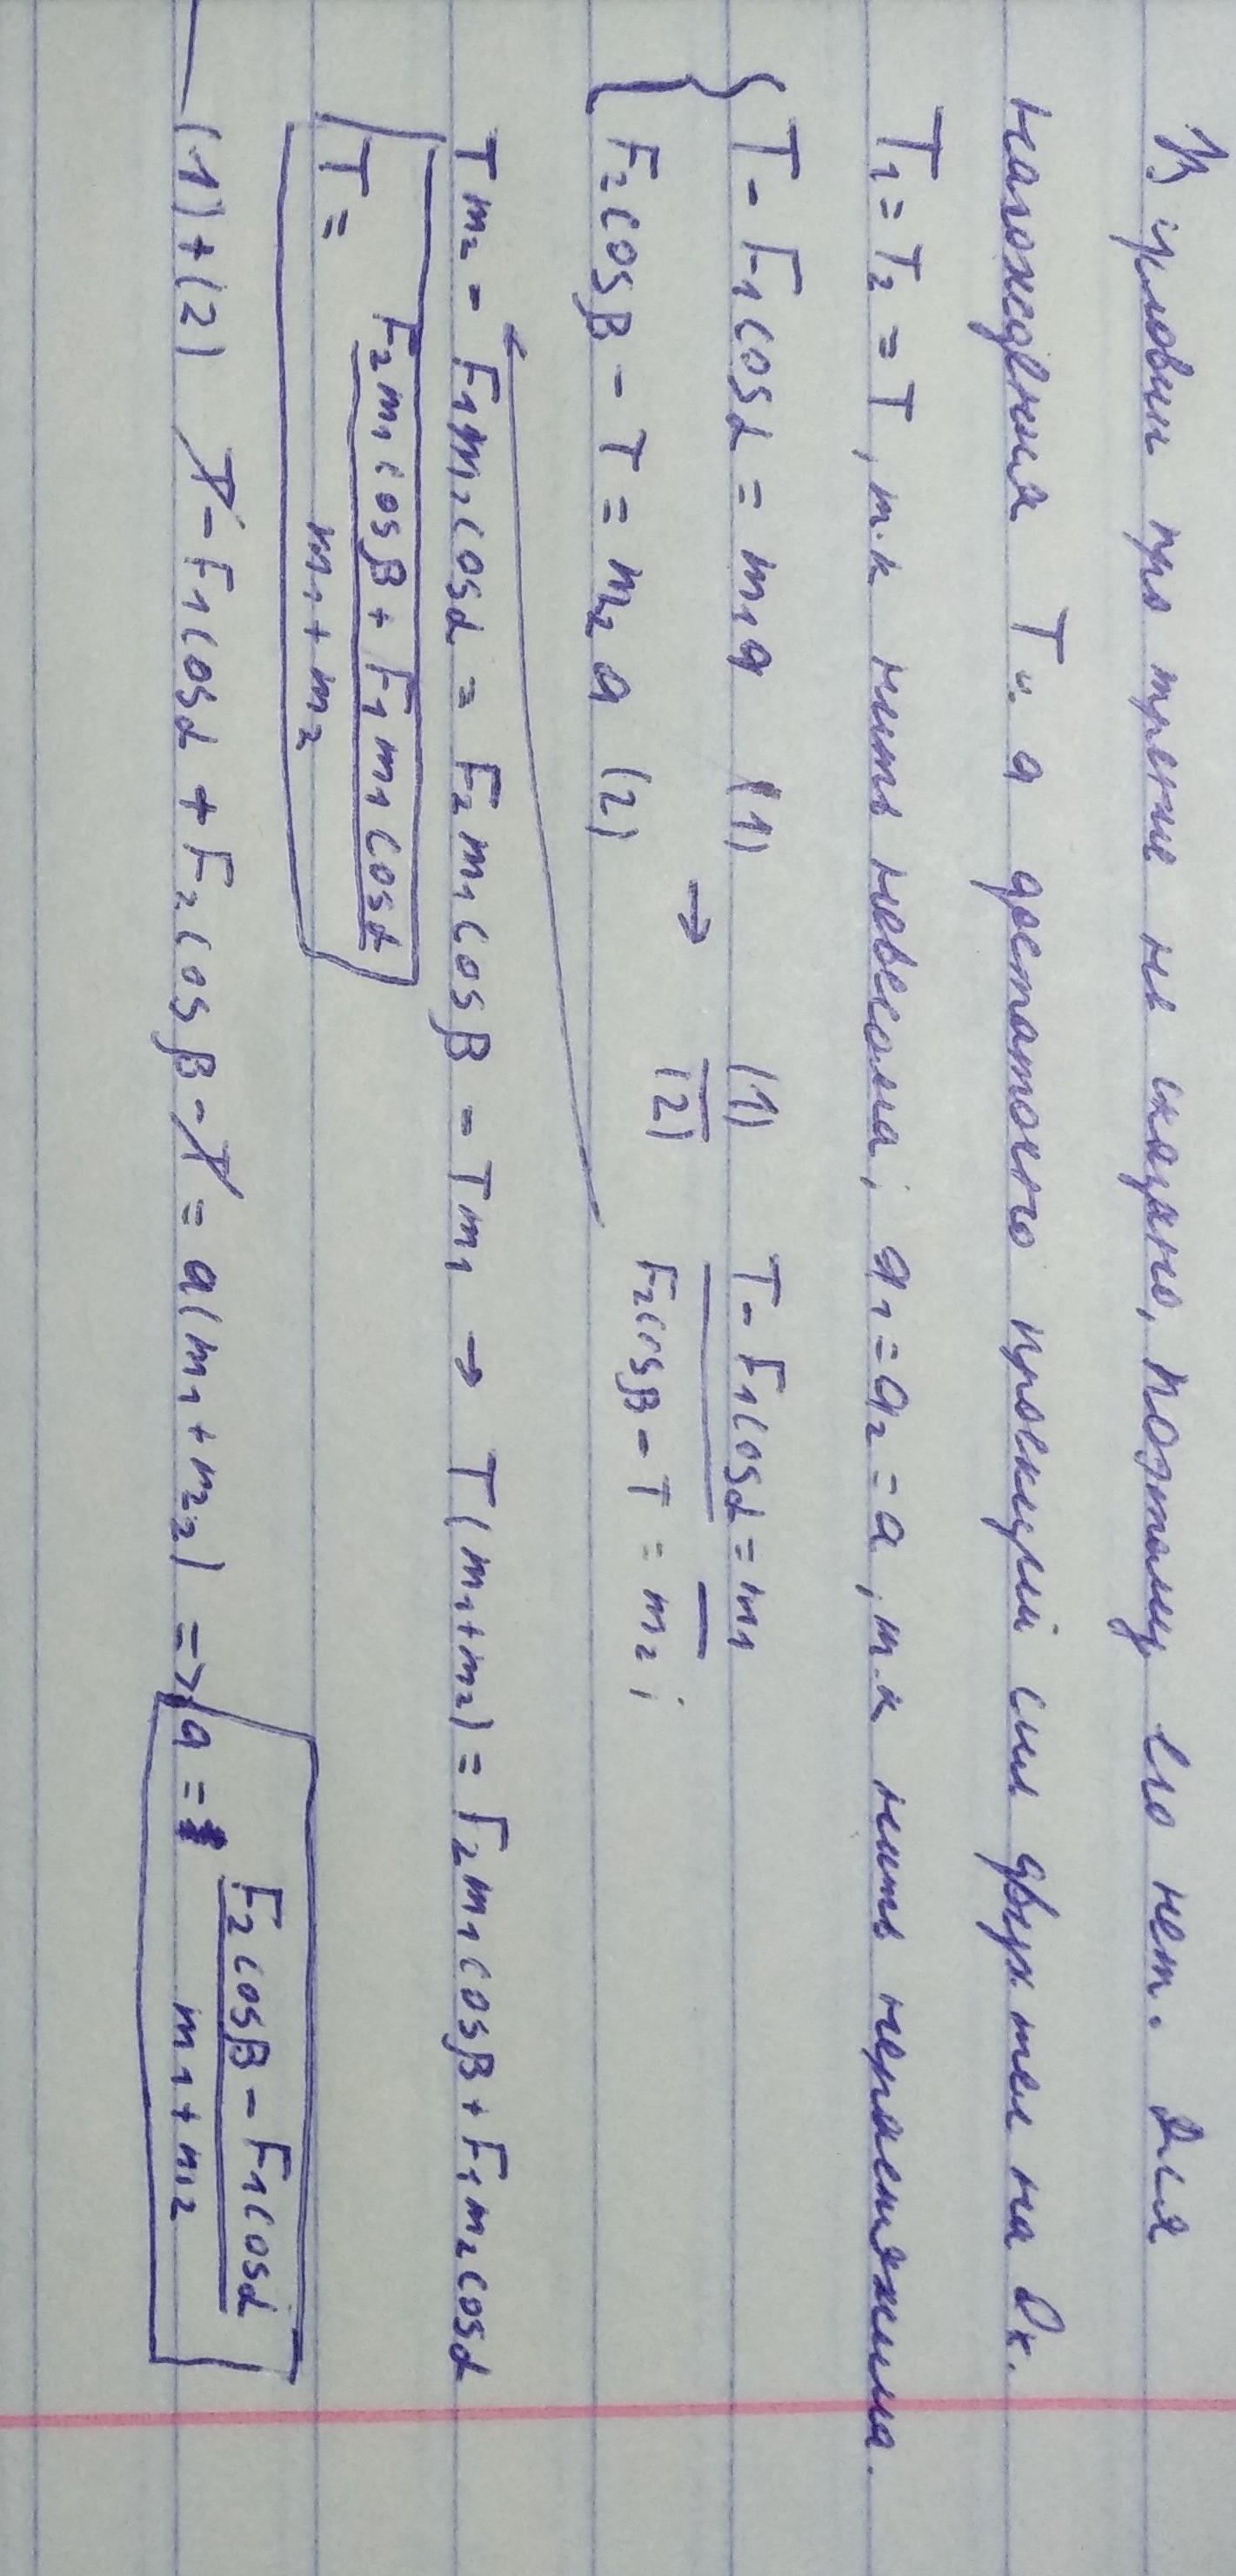 В условии про трение не сказано, поэтому его нет. Для
нахождения T и a достаточно проекций сил двух тел на Ox.
T₁ = T₂ = T, т.к нить невесома; a₁ = a₂ = a, т.к нить нерастяжима.
{ T - F₁cosα = m₁a (1) → (1)/(2) (T - F₁cosα)/(F₂cosβ - T) = m₁/m₂ ;
{ F₂cosβ - T = m₂a (2)
Tm₂ - F₁m₂cosα = F₂m₁cosβ - Tm₁ → T(m₁+m₂) = F₂m₁cosβ + F₁m₂cosα
T = (F₂m₁cosβ + F₁m₁cosα)/(m₁+m₂)
(1)+(2) T - F₁cosα + F₂cosβ - T = a(m₁+m₂) => a = (F₂cosβ - F₁cosα)/(m₁+m₂)